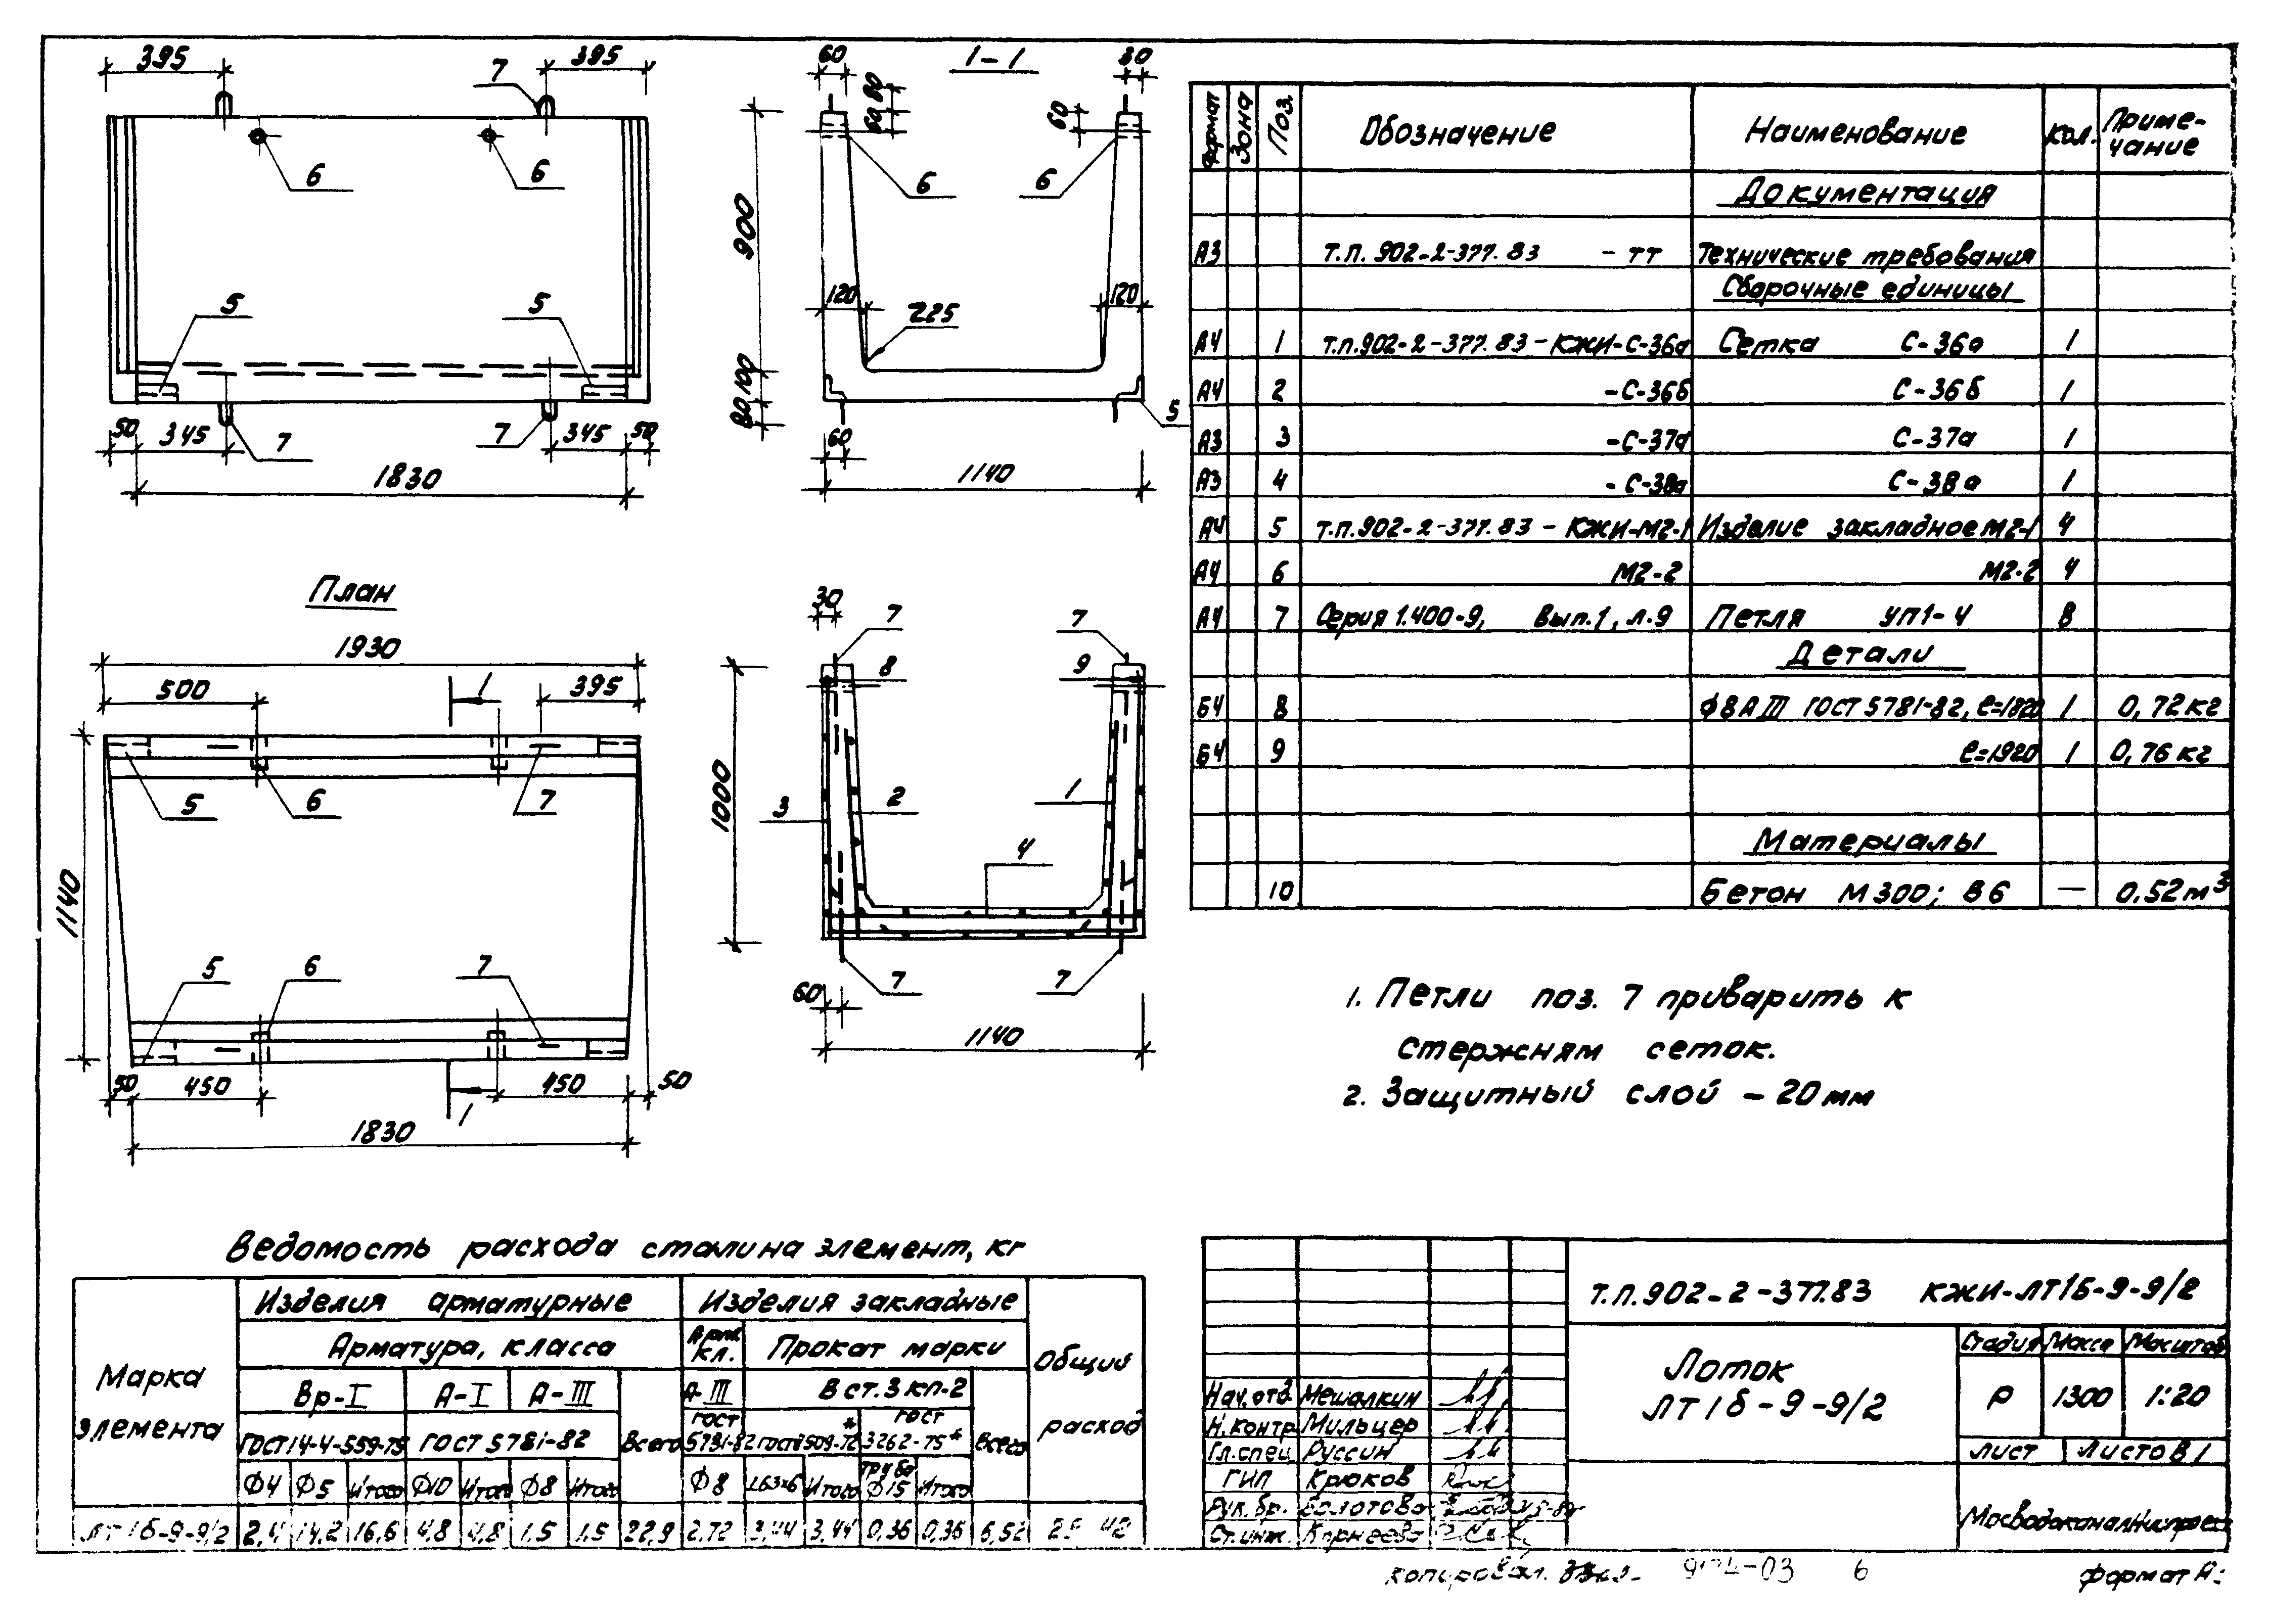 395
7
395
6
6
5
5
50
345
7
7
345
50
1830
60
1-1
30
60 80
60
6
6
900
120
120
225
80 100
5
60
1140
План
1930
500
1
395
5
6
7
1140
5
6
7
50
450
1
450
50
1830
30
7
7
8
9
1000
3
2
1
4
60
7
7
1140
Формат Зона Поз. Обозначение Наименование Кол. Приме-
чание
Документация
А3 Т.П. 902-2-377.83 - ТТ Технические требования
Сборочные единицы
А4 1 Т.П.902-2-377.83-КЖИ-С-36а Сетка С-36а 1
А4 2 -С-36б С-36б 1
А3 3 -С-37а С-37а 1
А3 4 -С-38а С-38а 1
А4 5 Т.П.902-2-377.83-КЖИ-М2-1 Изделие закладное М2-1 4
А4 6 М2-2 М2-2 4
А4 7 Серия 1.400-9, Вып.1, л.9 Петля УП1-4 8
Детали
Б4 8 ф8АIII ГОСТ 5781-82, ℓ=1820 1 0,72кг
Б4 9 ℓ=1920 1 0,76кг
Материалы
10 Бетон М300; В6 — 0.52м³
1. Петли поз. 7 приварить к
стержням сеток.
2. Защитный слой - 20мм
Ведомость расхода стали на элемент, кг
Марка элемента
Изделия арматурные Изделия закладные Общий расход
Арматура, класса Арм. кл. Прокат марки
Вр-I А-I А-III Всего А-III В ст.3 кп-2 Всего
ГОСТ 14-4-559-75 ГОСТ 5781-82 ГОСТ 5781-82 ГОСТ 8509-72* ГОСТ 3262-75*
Ф4 Ф5 Итого Ф10 Итого Ф8 Итого Ф8 L63х6 Итого Труба Ф15 Итого
ЛТ1б-9-9/2 2,4 14,2 16,6 4,8 4,8 1,5 1,5 22,9 2,72 3,44 3,44 0,36 0,36 6,52 42
Т.П.902-2-377.83 КЖИ-ЛТ1Б-9-9/2
Лоток
ЛТ1б-9-9/2
Стадия Масса Масштаб
Р 1300 1:20
Лист Листов 1
Мосводоканалниипроект
Нач.отд. Мешалкин
Н.контр. Мильцер
Гл.спец. Руссин
ГИП Крюков
Рук.бр. Болотова
Ст.инж. Корнеева
Копировал. 9174-03 6 формат А